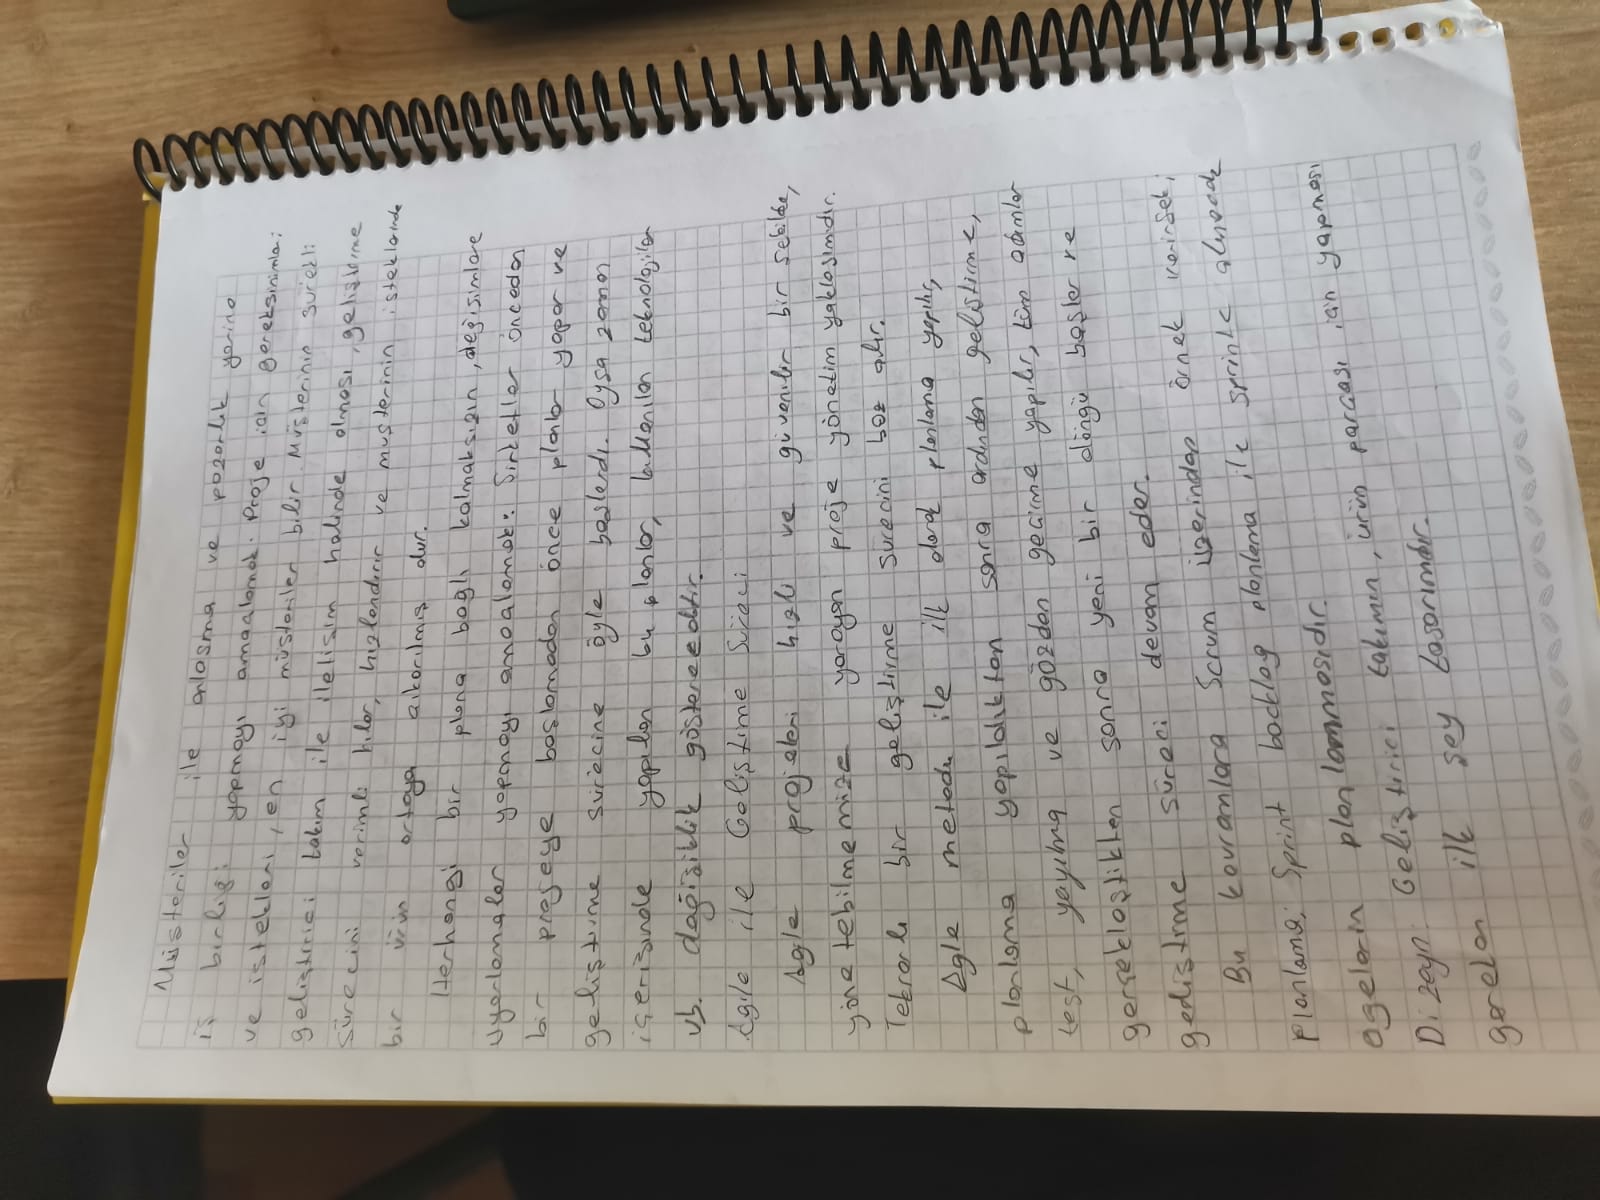 Müsteriler ile anlasma ve pazarlık yerine
iş birligi yapmayı amaalamak. Proje iain gereksinimler;
ve istekleri, en iyi müsteriler bilir. Müsterinin surekli
geliştirici takım ile iletisim halinde olması, geliştirme
sürecini verimli kılar, hızlandırır ve musterinin isteklerinde
bir ürün ortaya aıkarılmış olur.
Herhangi bir plana baglı kalmaksızın, değişimlere
uyarlamalar yapmayı amaalamak: Sirketler önceden
bir projeye baslamadan önce planlar yapar ve
geliştirme surecine öyle baslardı. Oysa zaman
içerisinde yapılan bu planlar, kullanılan teknolojiler
vb. değişiklik gösterecektir.
Agile ile Geliştirme Süreci
Agile projeleri hızlı ve güvenilir bir sekilde,
yönetebilmemize yarayan proje yönetim yaklasımıdır.
Tekrarlı bir geliştirme surecini baz alır.
Agle metodu ile ilk olarak planlama yapılır,
planlama yapıldıktan sonra ardından gelistirme,
test, yayılma ve gözden geairme yapılır, tüm adımlar
gerçekleştikten sonra yeni bir döngü başlar ve
geliştirme süreci devam eder.
Bu kavramlara Scrum üzerinden örnek verirsek;
Planlama; Sprint backlog planlama ile sprinte alınacak
ögelerin planlanmasıdır.
Dizayn: Geliştirici takımın, ürün parcası iain yapması
gereken ilk sey tasarımdır.